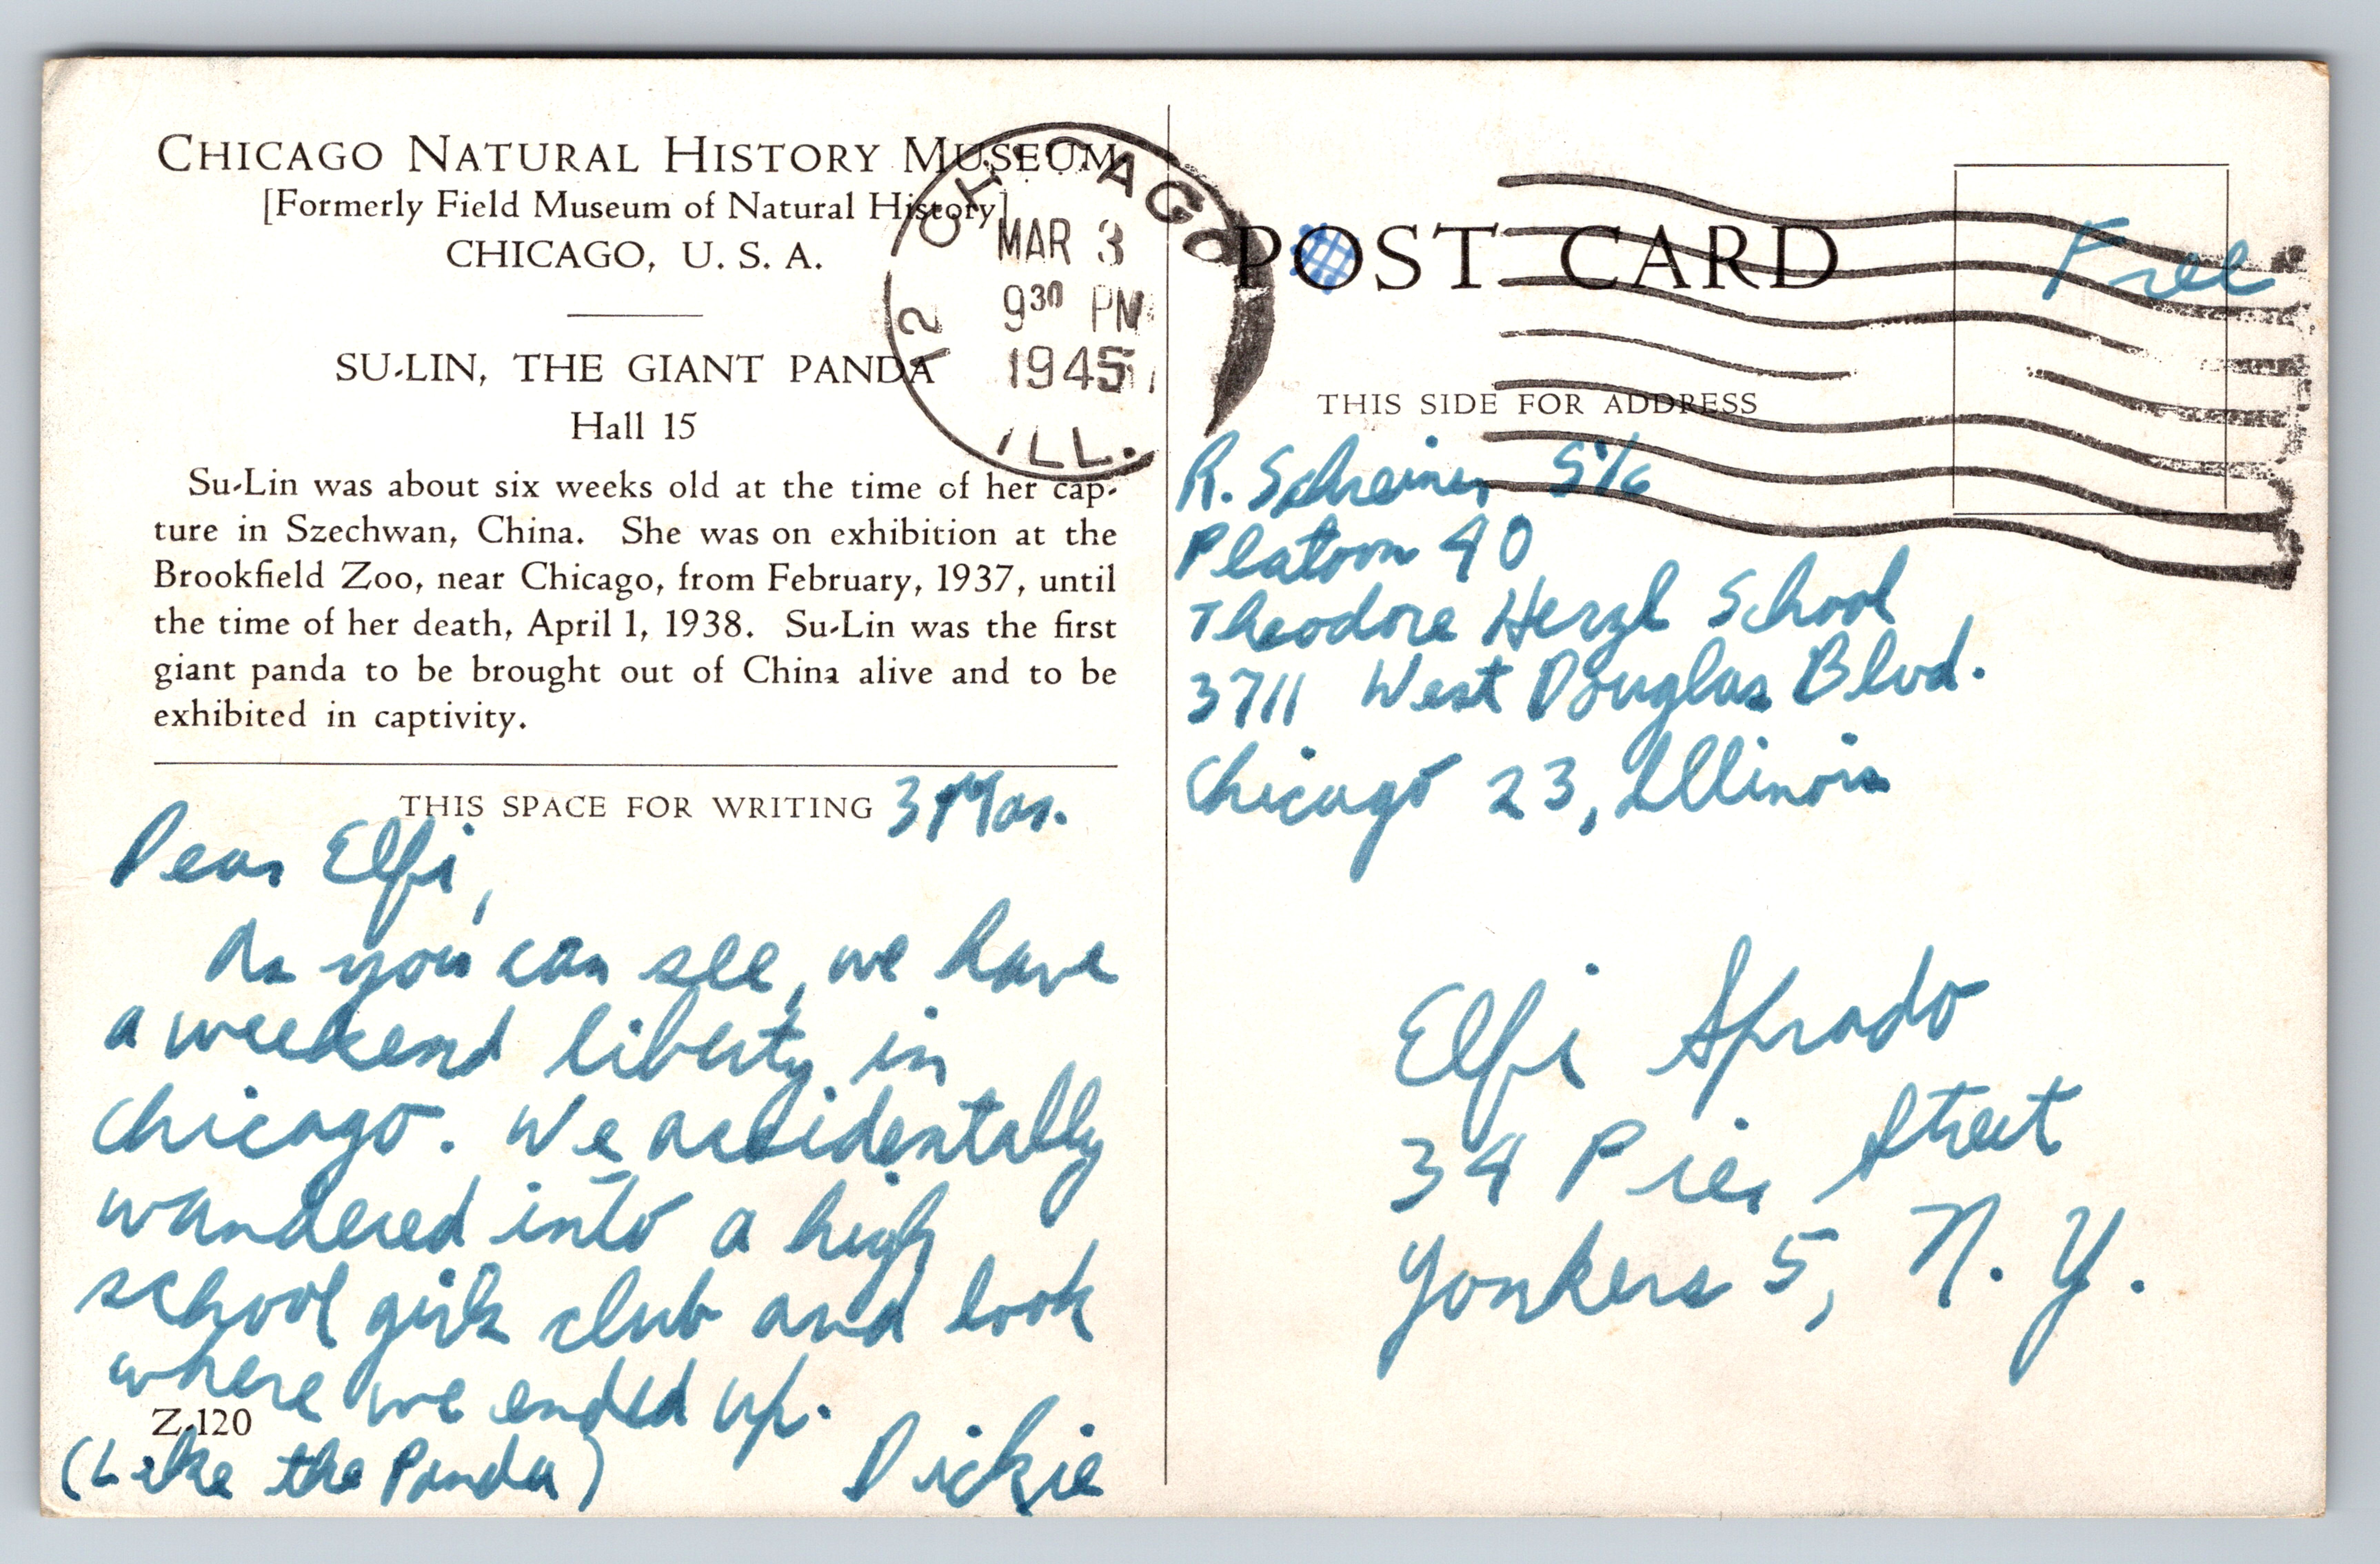 CHICAGO NATURAL HISTORY MUSEUM
[Formerly Field Museum of Natural History]
CHICAGO, U. S. A.
SU-LIN, THE GIANT PANDA
Hall 15
Su-Lin was about six weeks old at the time of her cap-
ture in Szechwan, China. She was on exhibition at the
Brookfield Zoo, near Chicago, from February, 1937, until
the time of her death, April 1, 1938. Su-Lin was the first
giant panda to be brought out of China alive and to be
exhibited in captivity.
THIS SPACE FOR WRITING 3 Mar.
Dear Elfi,
As you can see, we have
a weekend liberty in
Chicago. We accidentally
wandered into a high
school girls club and look
where we ended up.
Z-120
(Like the Panda) Dickie
CHICAGO 12
MAR 3
9 30 PM
1945
ILL.
POST CARD
Free
THIS SIDE FOR ADDRESS
R. Schreiner S1/c
Platoon 40
Theodore Herzl School
3711 West Douglas Blvd.
Chicago 23, Illinois
Elfi Sprado
34 Pier Street
Yonkers 5, N. Y.